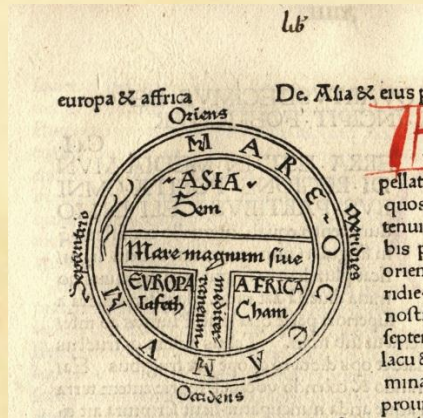 lib
europa & affrica
De. Asia & eius p
Oriens
MARE OCCEANUM
ASIA
Sem
Septentrio
Meridies
Mare magnum siue
mediterraneum
EVROPA
Iafeth
AFRICA
Cham
Occidens
pellat
quos
tenui
bis p
orien
ridie
nosti
septen
lacu &
mina
prouin